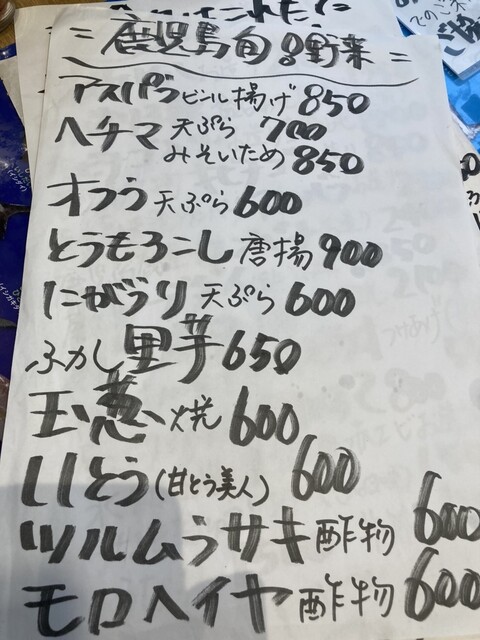 = 鹿児島旬の野菜 =
アスパラ ビール揚げ 850
ヘチマ 天ぷら 700
みそいため 850
オクラ 天ぷら 600
とうもろこし 唐揚 900
にがうり 天ぷら 600
ふかし里芋 650
玉葱焼 600
ししとう(甘とう美人) 600
ツルムラサキ 酢物 600
モロヘイヤ 酢物 600